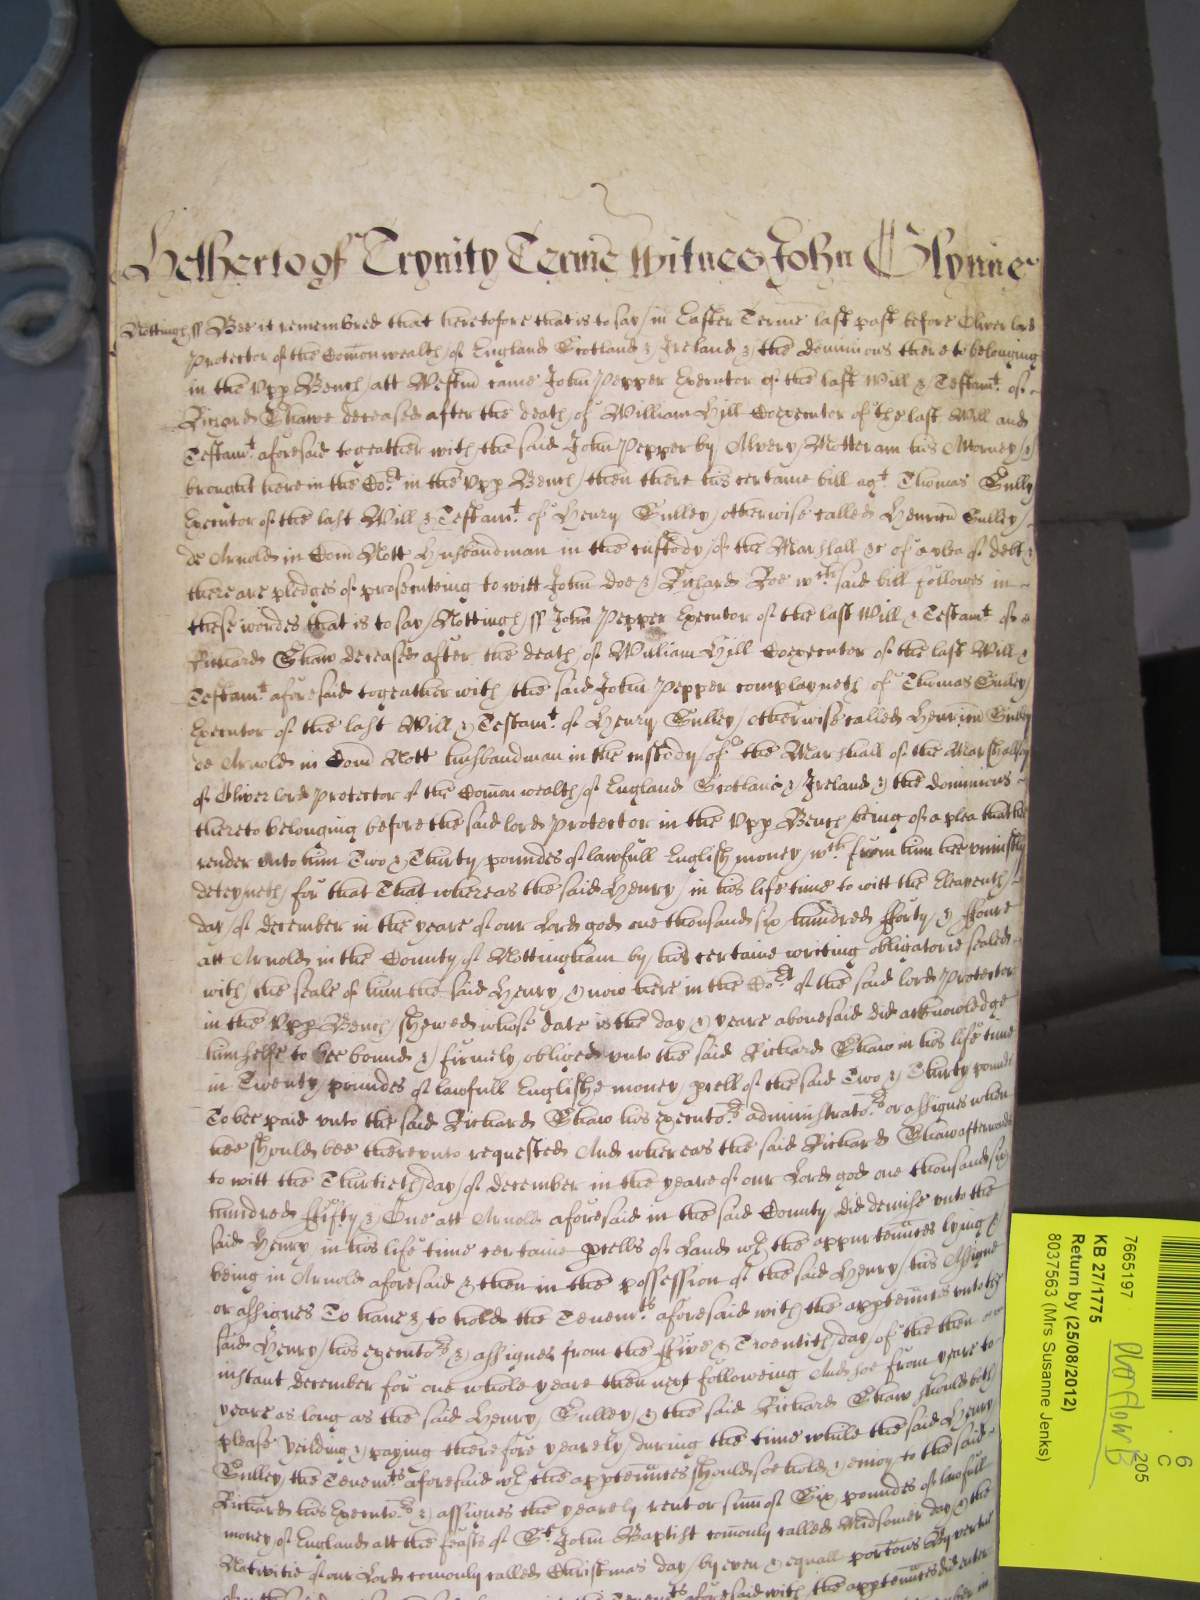 Hetherto of Trynity Terme Witnes John Glynne
Nottingh ss Bee it remembred that heretofore that is to say in Easter Terme last past before Oliver lord
Protector of the Comonwealth of England Scotland & Ireland & the dominions there to belonging
in the Upp Bench att Westm came John Pepper Executor of the last Will & Testamt of
Richard Shawe deceased after the death of William Hill Coexecutor of the last Will and
Testamt aforesaid togeather with the said John Pepper by Alvery Motteram his Attorney &
brought here in the Cort in the Upp Bench then there his certaine bill agt Thomas Gulley
Executor of the last Will & Testamt of Henry Gulley otherwise called Henrici Gulley
de Arnold in Com Nott Husbandman in the custody of the Marshall &c of a plea of debt &
there are pledges of prosecuteing to witt John Doe & Richard Roe wch said bill followes in
these wordes that is to say Nottingh ss John Pepper Executor of the last Will & Testamt of
Richard Shaw deceased after the death of William Hill Coexecutor of the last Will &
Testamt aforesaid togeather with the said John Pepper complayneth of Thomas Gulley
Executor of the last Will & Testamt of Henry Gulley otherwise called Henrici Gulley
de Arnold in Com Nott husbandman in the custody of the Marshall of the Marshallsey
of Oliver lord Protector of the Comonwealth of England Scotland & Ireland & the dominions
thereto belonging before the said lord Protector in the Upp Bench being of a plea that hee
render unto him Two & Thirty poundes of lawfull English money wch from him hee uniustly
deteyneth for that That whereas the said Henry in his life time to witt the Eleaventh
day of december in the yeare of our Lord god one thousand six hundred fforty & ffoure
att Arnold in the County of Nottingham by his certaine writing obligatorie sealed
with the seale of him the said Henry & now here in the Cort of the said lord Protector
in the Upp Bench shewed whose date is the day & yeare abovesaid did acknowledge
himselfe to bee bound & firmely obliged unto the said Richard Shaw in his life time
in Twenty poundes of lawfull Englishe money pcell of the said Two & Thirty pounds
To bee paid unto the said Richard Shaw his executors administrators or assignes when
hee should bee thereunto requested And whereas the said Richard Shaw afterwards
to witt the Thirtieth day of december in the yeare of our Lord god one thousand six
hundred ffifty & One att Arnold aforesaid in the said County did demise unto the
said Henry in his life time certaine pcells of Land wth the appurtenncs lying &
being in Arnold aforesaid & then in the possession of the said Henry his Assigne
or assignes To have & to hold the Tenemts aforesaid with the apptenncs unto the
said Henry his executors & assignes from the ffive & Twentith day of the then
instant december for one whole yeare then next following And soe from yeare to
yeare as long as the said Henry Gulley & the said Richard Shaw should both
please Yeilding & paying therefore yearely during the time while the said Henry
Gulley the Tenemts aforesaid wth the apptenncs should soe hold & enioy to the said
Richard his Executors & assignes the yearely rent or sum of Six poundes of lawfull
money of England att the feasts of St John Baptist comonly called Midsomer day & the
Nativitie of our Lord comonly called Christmas day by even & equall portions By vertue
Tenemts aforesaid with the apptenncs did enter
7665197
KB 27/1775
Return by (25/08/2012)
8037563 (Mrs Susanne Jenks)
6
C
205